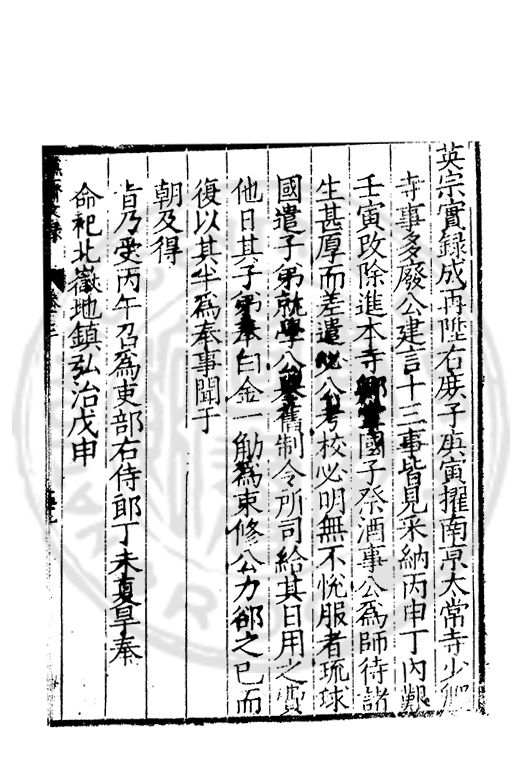 英宗實録成再陞右庶子庚寅擢南京太常寺少卿
寺事多廢公建言十三事皆見采納丙申丁內艱
壬寅改除進本寺卿掌國子祭酒事公為師待諸
生甚厚而差遣必公考校必明無不悅服者琉球
國遣子弟就學公舉舊制令所司給其日用之費
他日其子弟奉白金一觔為束修公力卻之已而
復以其半為奉事聞于
朝及得
旨乃受丙午召為吏部右侍郎丁未夏旱奉
命祀北嶽地鎮弘治戊申
卷三